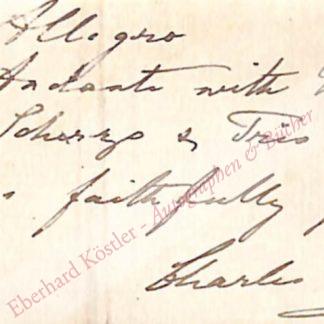 Allegro
Andante with
Scherzo & Trio
faithfully
Charles
Eberhard Köstler - Autographen & Bücher